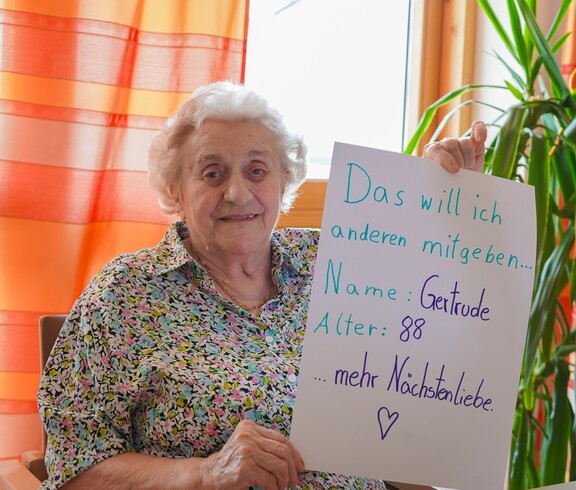 Das will ich
anderen mitgeben...
Name: Gertrude
Alter: 88
... mehr Nächstenliebe.
♡